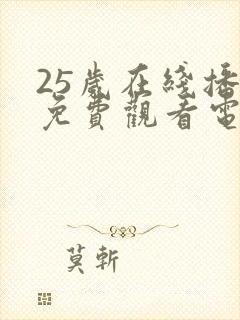 25歲在綫播
免費觀看電
莫斬